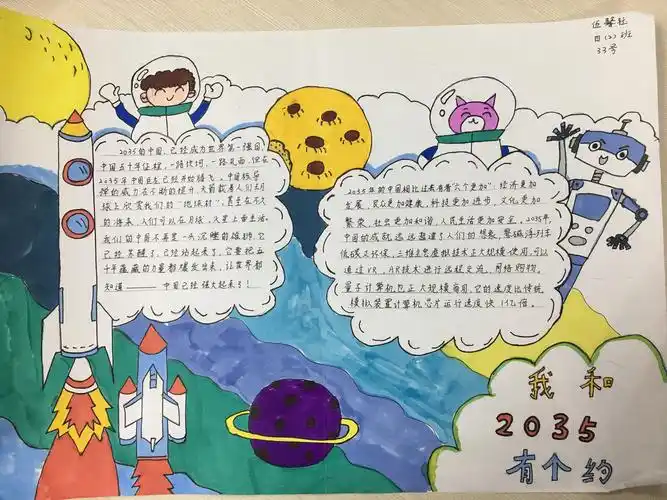 伍馨铭
四(2)班
33号
2035的中国，已经成为世界第一强国
中国五十年征程，一路坎坷，一路充满，但在
2035年中国在各已经开始强大，中国核导
弹的威力在不断的提升，天宫载着人们去月
球上欣赏我们的“地球村”，甚至在不久
的将来，人们可以在月球、火星上面生活。
我们的中国不再是一头沉睡的雄狮，它
已经苏醒了，已经站起来了，它要把五
千年蕴藏的力量都爆发出来，让世界都
知道——— 中国已经强大起来了！
2035年的中国相比过去有着“六个更加”：经济更加
发展、民主更加健全、科技更加进步、文化更加
繁荣、社会更加和谐、人民生活更加安全。2035年，
中国的成就远远超过了人们的想象，磁悬浮列车
低碳又环保，三维立体虚拟技术正大规模使用，可以
通过VR、AR技术进行远程交流，网络购物。
量子计算机也正大规模商用，它的速度比传统
模拟装置计算机芯片运行速度快1亿倍。
我和
2035
有个约